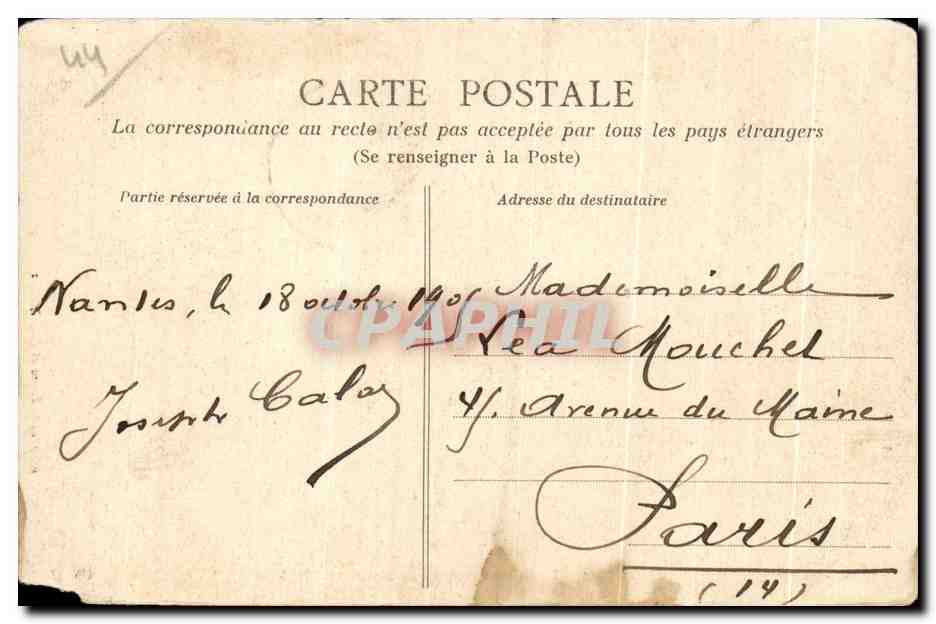 44
CARTE POSTALE
La correspondance au recto n'est pas acceptée par tous les pays étrangers
(Se renseigner à la Poste)
Partie réservée à la correspondance
Adresse du destinataire
Nantes, le 18 octobre 1905
Joseph
Mademoiselle
Léa Mouchet
45. Avenue du Maine
Paris
(14)
CPAPHIL